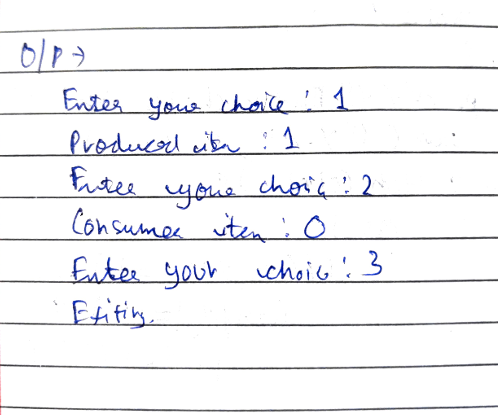 O/P →
Enter your choice : 1
Produced item : 1
Enter your choic : 2
Consumer item : 0
Enter your choic : 3
Exiting.